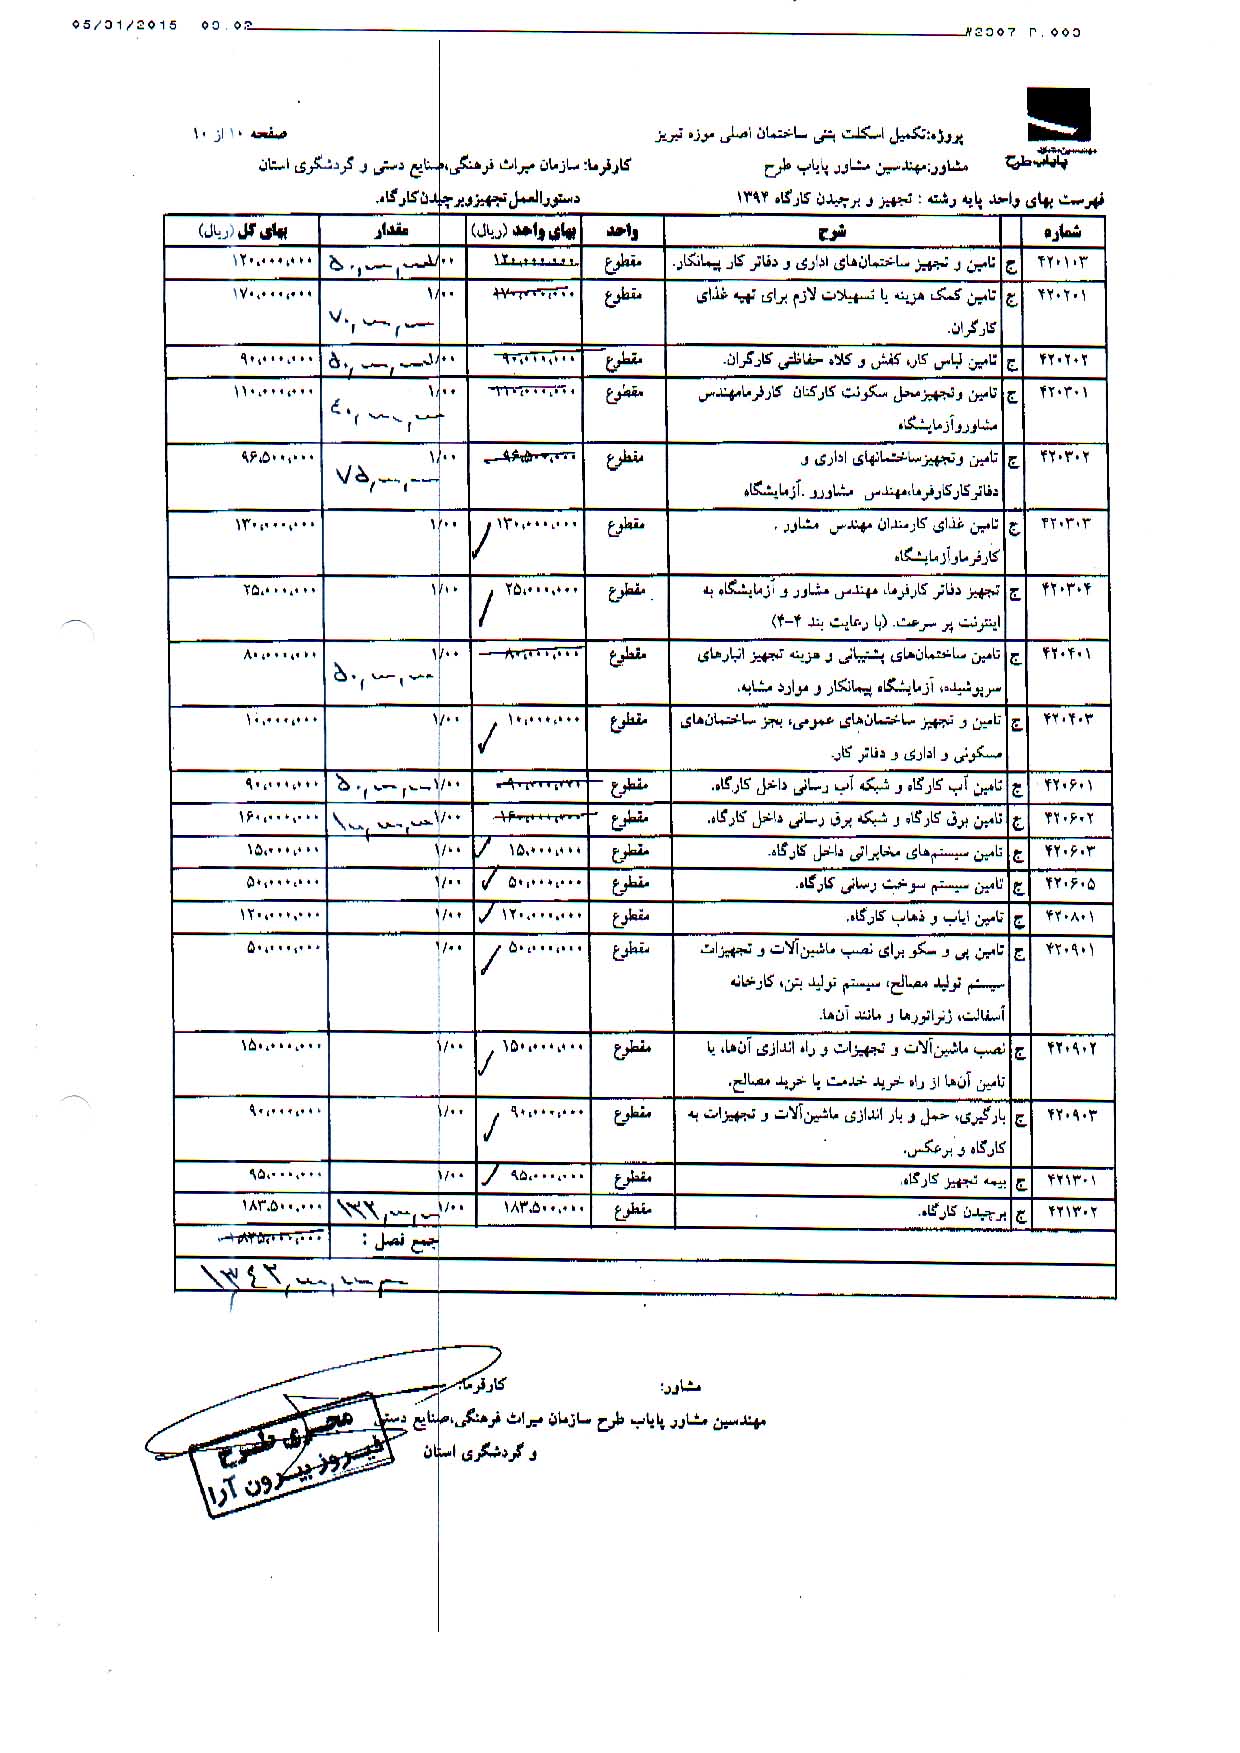 05/01/2015 00.02 #2007 P.000
مهندسین مشاور
پایاب طرح
پروژه:تکمیل اسکلت بتنی ساختمان اصلی موزه تبریز صفحه ۱۰ از ۱۰
مشاور:مهندسین مشاور پایاب طرح کارفرما: سازمان میراث فرهنگی،صنایع دستی و گردشگری استان
فهرست بهای واحد پایه رشته : تجهیز و برچیدن کارگاه ۱۳۹۴ دستورالعمل تجهیز و برچیدن کارگاه.
شماره شرح واحد بهای واحد (ریال) مقدار بهای کل (ریال)
۴۲۰۱۰۳ ج تامین و تجهیز ساختمان‌های اداری و دفاتر کار پیمانکار. مقطوع ۱۲۰,۰۰۰,۰۰۰ ۱/۰۰ ۵۰,۰۰۰,۰۰۰ ۱۲۰,۰۰۰,۰۰۰
۴۲۰۲۰۱ ج تامین کمک هزینه یا تسهیلات لازم برای تهیه غذای مقطوع ۱۷۰,۰۰۰,۰۰۰ ۱/۰۰ ۱۷۰,۰۰۰,۰۰۰
کارگران. ۷۰,۰۰۰,۰۰۰
۴۲۰۲۰۲ ج تامین لباس کار، کفش و کلاه حفاظتی کارگران. مقطوع ۹۰,۰۰۰,۰۰۰ ۱/۰۰ ۵۰,۰۰۰,۰۰۰ ۹۰,۰۰۰,۰۰۰
۴۲۰۳۰۱ ج تامین وتجهیزمحل سکونت کارکنان کارفرمامهندس مقطوع ۱۱۰,۰۰۰,۰۰۰ ۱/۰۰ ۱۱۰,۰۰۰,۰۰۰
مشاوروآزمایشگاه ۴۰,۰۰۰,۰۰۰
۴۲۰۳۰۲ ج تامین وتجهیزساختمانهای اداری و مقطوع ۹۶,۵۰۰,۰۰۰ ۱/۰۰ ۹۶,۵۰۰,۰۰۰
دفاترکارکارفرما،مهندس مشاورو .آزمایشگاه ۷۵,۰۰۰,۰۰۰
۴۲۰۳۰۳ ج تامین غذای کارمندان مهندس مشاور . مقطوع ۱۳۰,۰۰۰,۰۰۰ ۱/۰۰ ۱۳۰,۰۰۰,۰۰۰
کارفرماوآزمایشگاه
۴۲۰۳۰۴ ج تجهیز دفاتر کارفرما، مهندس مشاور و آزمایشگاه به مقطوع ۲۵,۰۰۰,۰۰۰ ۱/۰۰ ۲۵,۰۰۰,۰۰۰
اینترنت پر سرعت. (با رعایت بند ۴-۴)
۴۲۰۴۰۱ ج تامین ساختمان‌های پشتیبانی و هزینه تجهیز انبارهای مقطوع ۸۰,۰۰۰,۰۰۰ ۱/۰۰ ۸۰,۰۰۰,۰۰۰
سرپوشیده، آزمایشگاه پیمانکار و موارد مشابه. ۵۰,۰۰۰,۰۰۰
۴۲۰۴۰۳ ج تامین و تجهیز ساختمان‌های عمومی، بجز ساختمان‌های مقطوع ۱۰,۰۰۰,۰۰۰ ۱/۰۰ ۱۰,۰۰۰,۰۰۰
مسکونی و اداری و دفاتر کار.
۴۲۰۶۰۱ ج تامین آب کارگاه و شبکه آب رسانی داخل کارگاه. مقطوع ۹۰,۰۰۰,۰۰۰ ۱/۰۰ ۵۰,۰۰۰,۰۰۰ ۹۰,۰۰۰,۰۰۰
۴۲۰۶۰۲ ج تامین برق کارگاه و شبکه برق رسانی داخل کارگاه. مقطوع ۱۶۰,۰۰۰,۰۰۰ ۱/۰۰ ۱۶۰,۰۰۰,۰۰۰
۴۲۰۶۰۳ ج تامین سیستم‌های مخابراتی داخل کارگاه. مقطوع ۱۵,۰۰۰,۰۰۰ ۱/۰۰ ۱۵,۰۰۰,۰۰۰
۴۲۰۶۰۵ ج تامین سیستم سوخت رسانی کارگاه. مقطوع ۵۰,۰۰۰,۰۰۰ ۱/۰۰ ۵۰,۰۰۰,۰۰۰
۴۲۰۸۰۱ ج تامین ایاب و ذهاب کارگاه. مقطوع ۱۲۰,۰۰۰,۰۰۰ ۱/۰۰ ۱۲۰,۰۰۰,۰۰۰
۴۲۰۹۰۱ ج تامین پی و سکو برای نصب ماشین‌آلات و تجهیزات مقطوع ۵۰,۰۰۰,۰۰۰ ۱/۰۰ ۵۰,۰۰۰,۰۰۰
سیستم تولید مصالح، سیستم تولید بتن، کارخانه
آسفالت، ژنراتورها و مانند آن‌ها.
۴۲۰۹۰۲ ج نصب ماشین‌آلات و تجهیزات و راه اندازی آن‌ها، یا مقطوع ۱۵۰,۰۰۰,۰۰۰ ۱/۰۰ ۱۵۰,۰۰۰,۰۰۰
تامین آن‌ها از راه خرید خدمت یا خرید مصالح.
۴۲۰۹۰۳ ج بارگیری، حمل و بار اندازی ماشین‌آلات و تجهیزات به مقطوع ۹۰,۰۰۰,۰۰۰ ۱/۰۰ ۹۰,۰۰۰,۰۰۰
کارگاه و برعکس.
۴۲۱۳۰۱ ج بیمه تجهیز کارگاه. مقطوع ۹۵,۰۰۰,۰۰۰ ۱/۰۰ ۹۵,۰۰۰,۰۰۰
۴۲۱۳۰۲ ج برچیدن کارگاه. مقطوع ۱۸۳,۵۰۰,۰۰۰ ۱/۰۰ ۱۳۲,۰۰۰,۰۰۰ ۱۸۳,۵۰۰,۰۰۰
جمع فصل : ۱,۸۳۵,۰۰۰,۰۰۰
۱۳۴۲,۰۰۰,۰۰۰
مشاور: کارفرما:
مهندسین مشاور پایاب طرح سازمان میراث فرهنگی،صنایع دستی
و گردشگری استان
مجری طرح
فیروز بیرون آرا